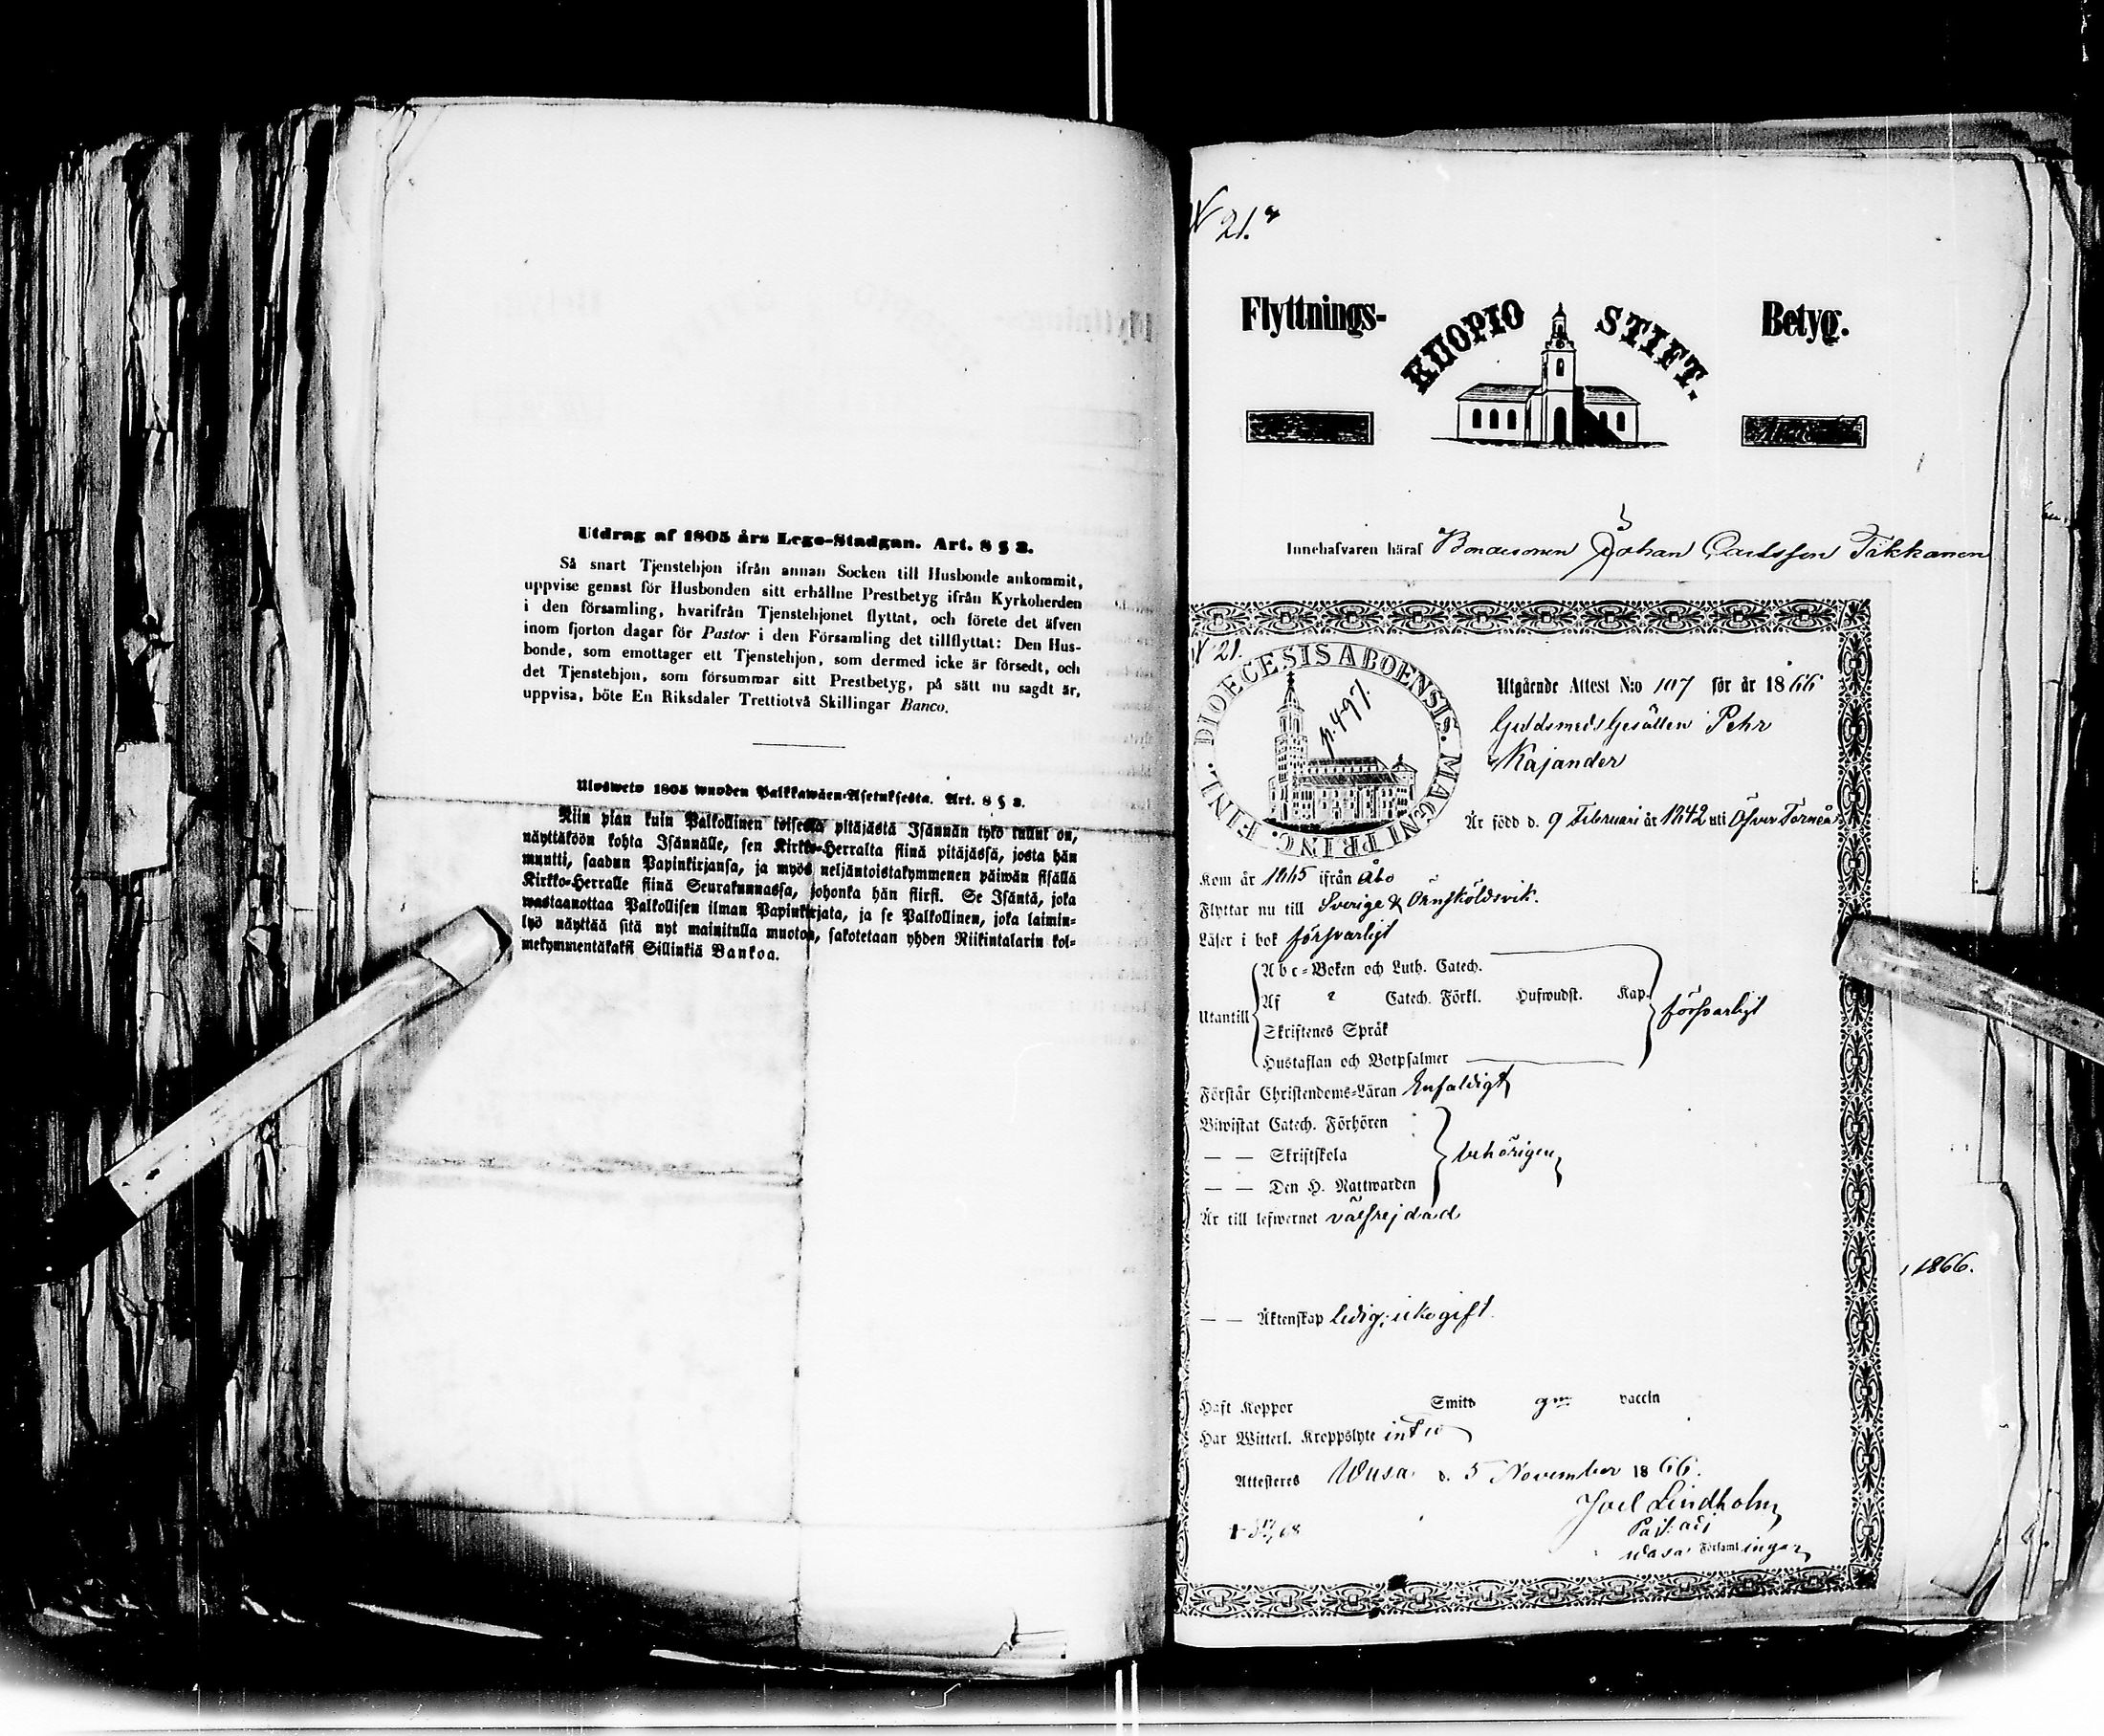 Utdrag af 1805 års Lego-Stadgan. Art. 8 § 2.
Så snart Tjenstehjon ifrån annan Socken till Husbonde ankommit,
uppvise genast för Husbonden sitt erhållne Prestbetyg ifrån Kyrkoherden
i den församling, hvarifrån Tjenstehjonet flyttat, och förete det äfven
inom fjorton dagar för Pastor i den Församling det tillflyttat: Den Hus-
bonde, som emottager ett Tjenstehjon, som dermed icke är försedt, och
det Tjenstehjon, som försummar sitt Prestbetyg, på sätt nu sagdt är,
uppvisa, böte En Riksdaler Trettiotvå Skillingar Banco.
Ulosweto 1805 wuoden Palkkawäen-Asetuksesta. Art. 8 § 2.
Niin pian kuin Palkollinen toisesta pitäjästä Isännän tykö tullut on,
näyttäköön kohta Isännälle, sen Kirkko-Herralta siinä pitäjässä, josta hän
muutti, saadun Papinkirjansa, ja myös neljäntoistakymmenen päiwän sisällä
Kirkko-Herralle siinä Seurakunnassa, johonka hän siirsi. Se Isäntä, joka
wastaanottaa Palkollisen ilman Papinkirjata, ja se Palkollinen, joka laimin-
lyö näyttää sitä nyt mainitulla muoton, sakotetaan yhden Riikintalarin kol-
mekymmentäkaksi Sillinkiä Bankoa.
N 21.
Flyttnings- KUOPIO STIFT. Betyg.
Innehafvaren häraf Bondesonen Johan Carlsson Tikkanen
N 21.
DIOECESIS ABOENSIS. MAGNI PRINC. FINL.
p. 497.
Utgående Attest N:o 107 för år 1866
Guldsmeds Gesällen Pehr
Kajander
Är född d. 9 Februari år 1842 uti Öfver Torneå
Kom år 1865 ifrån Åbo
Flyttar nu till Sverige & Örnsköldsvik.
Läser i bok försvarligt
Utantill
Abc-Boken och Luth. Catech.
Af Catech. Förkl. Hufwudst. Kap.
Skriftenes Språk
Hustaflan och Botpsalmer
försvarligt
Förstår Christendoms-Läran Enfaldigt
Biwistat Catech. Förhören
— — Skriftskola
— — Den H. Nattwarden
behörigen
Är till lefwernet välfrejdad
1866.
— — Äktenskap ledig, icke gift
Haft Koppor Smitto gm vaccin
Har Witterl. Kroppslyte intet
Attesteres Wasa d. 5 November 1866.
Joel Lindholm
Past. adj
Wasa Församlingar